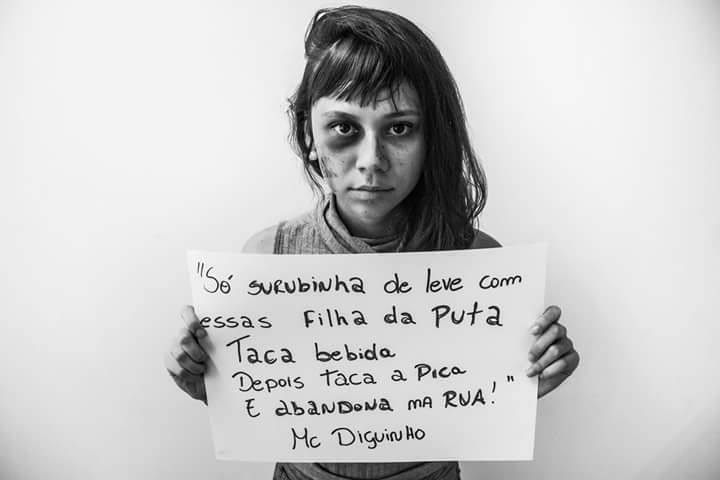 "Só SURUBINHA de leve com
essas Filha da Puta
Taca bebida
Depois taca a Pica
E abandona na RUA!"
Mc Diguinho